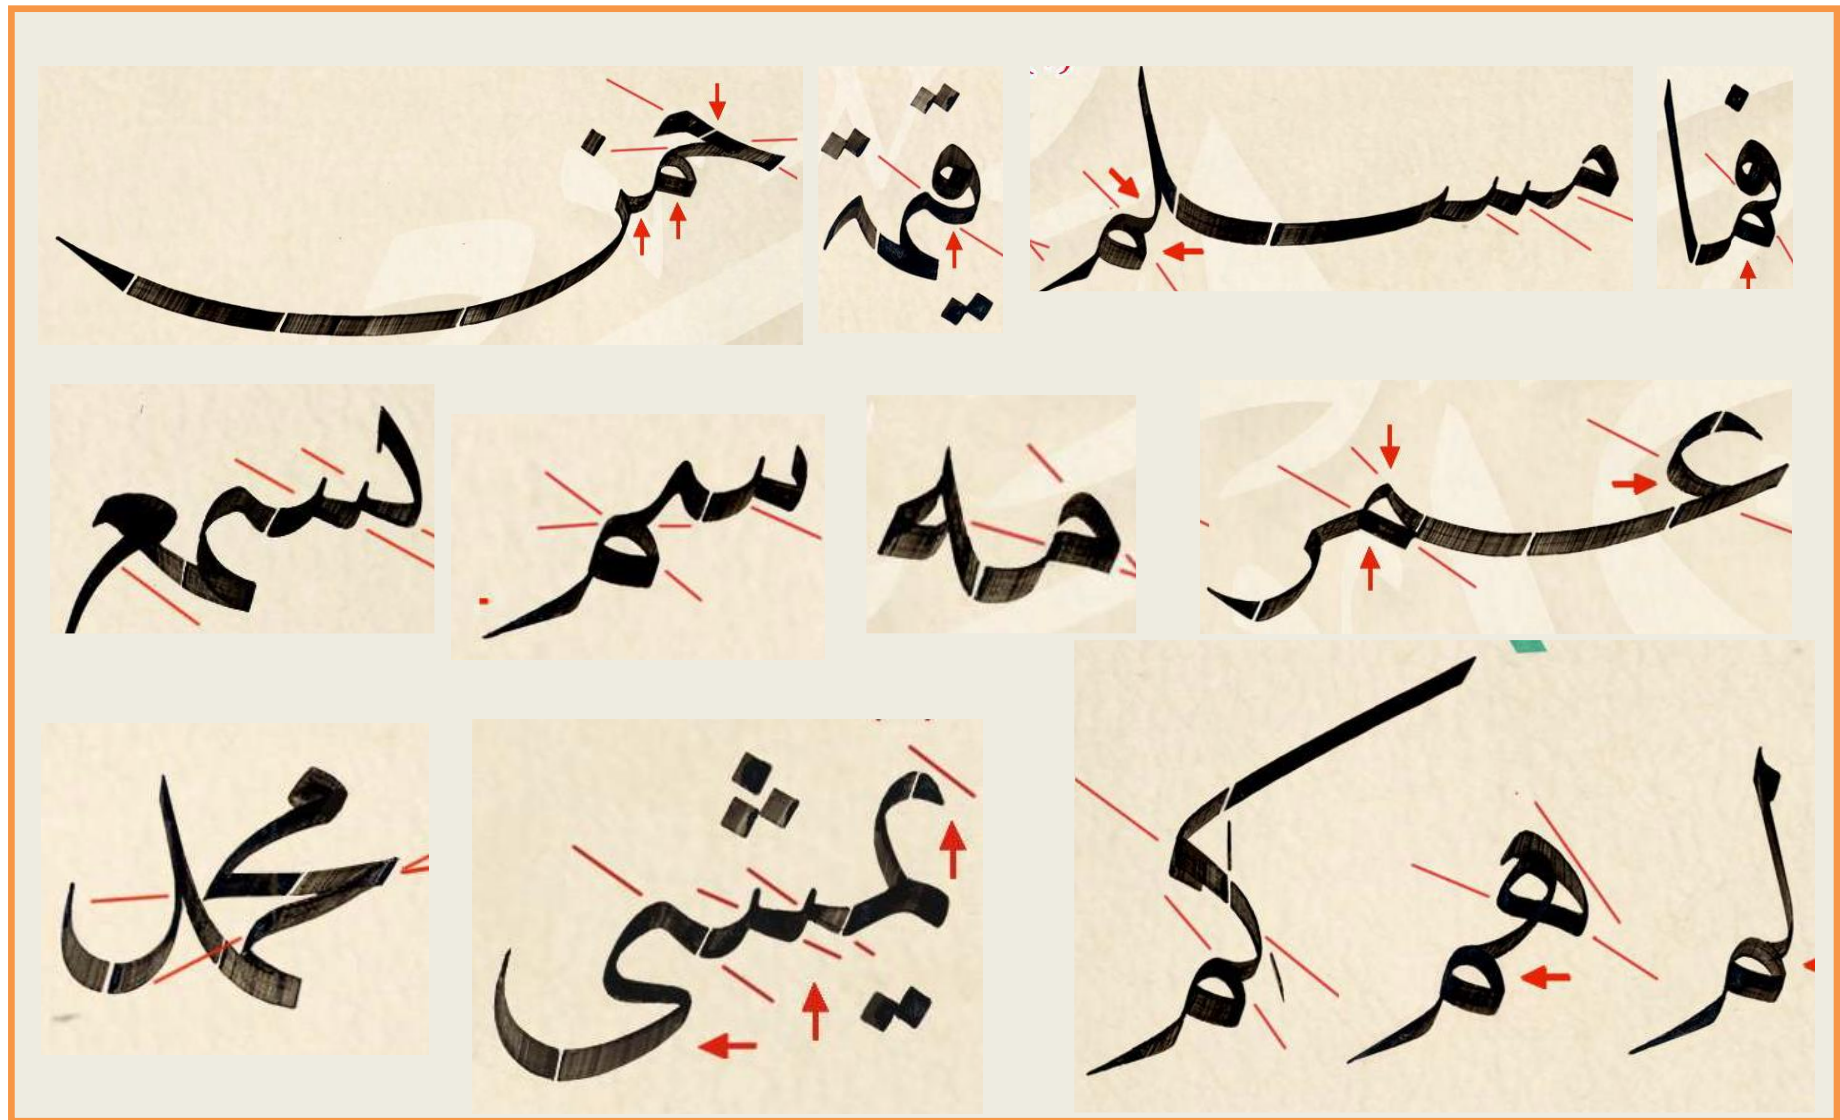 فما مسلم قيمة حمن
عمر مه سمم لسمع
لم هم كم يمشى محمد